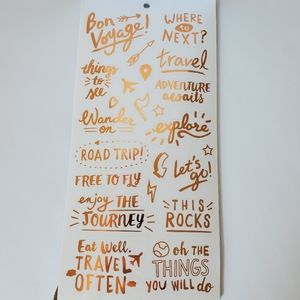 Bon
Voyage!
WHERE
to
NEXT?
travel
things
to
see
ADVENTURE
awaits
Wander
on
explore
ROAD TRIP!
let's
go!
FREE TO FLY
enjoy THE
JOURNEY
THIS
ROCKS
Eat Well.
TRAVEL
OFTEN
oh THE
THINGS
YOU WILL do